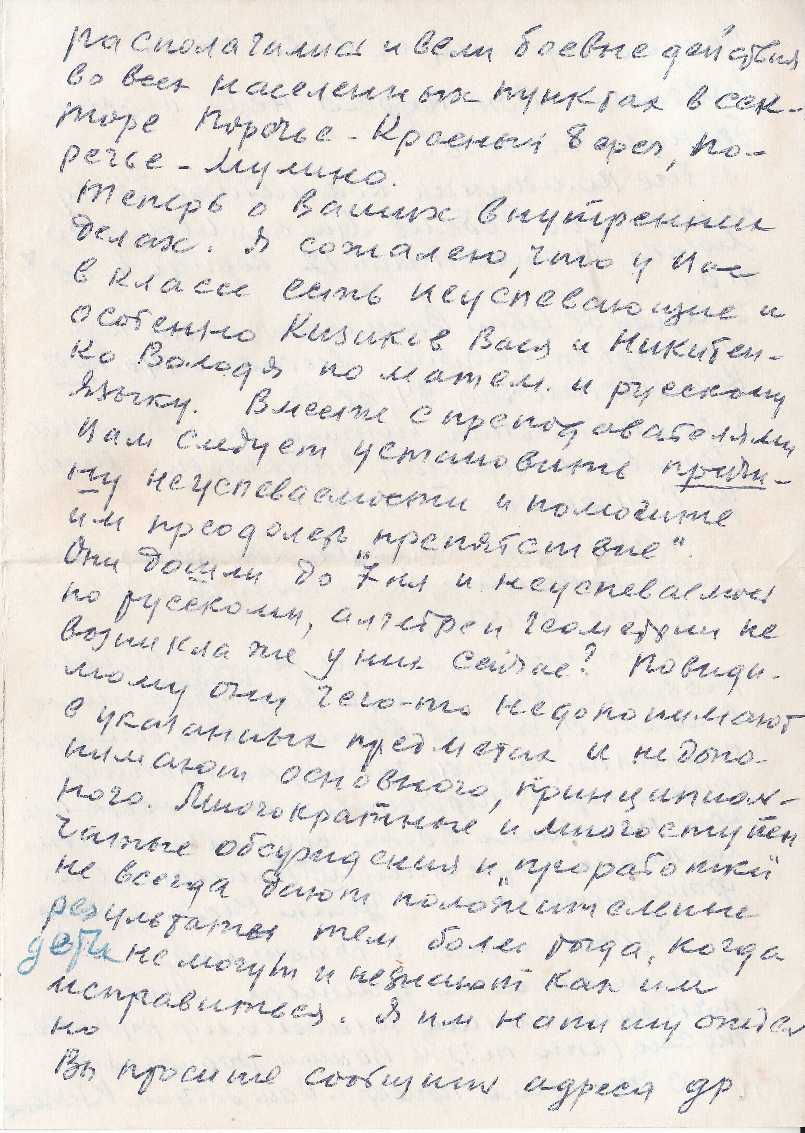 располагались и вели боевые действия
во всех населенных пунктах в сек-
торе Поречье - Красный Берег, По-
речье - Мулино.
Теперь о Ваших внутренних
делах. Я сожалею, что у Вас
в классе есть неуспевающие и
особенно Кизиков Вася и Никитен-
ко Володя по матем. и русскому
языку. Вместе с преподавателями
Вам следует установить причи-
ну неуспеваемости и помогите
им преодолеть "препятствие".
Они дошли до 7 кл и неуспеваемость
по русскому, алгебре и геометрии не
возникла же у них сейчас? Повиди-
мому они чего-то недопонимают
в указанных предметах и недопо-
нимают основного, принципиаль-
ного. Многократные и многоступен
чатые обсуждения и "проработки"
не всегда дают положительные
результаты тем более тогда, когда
дети не могут и не знают как им
исправиться. Я им напишу
но
Вы просите сообщить адреса др.